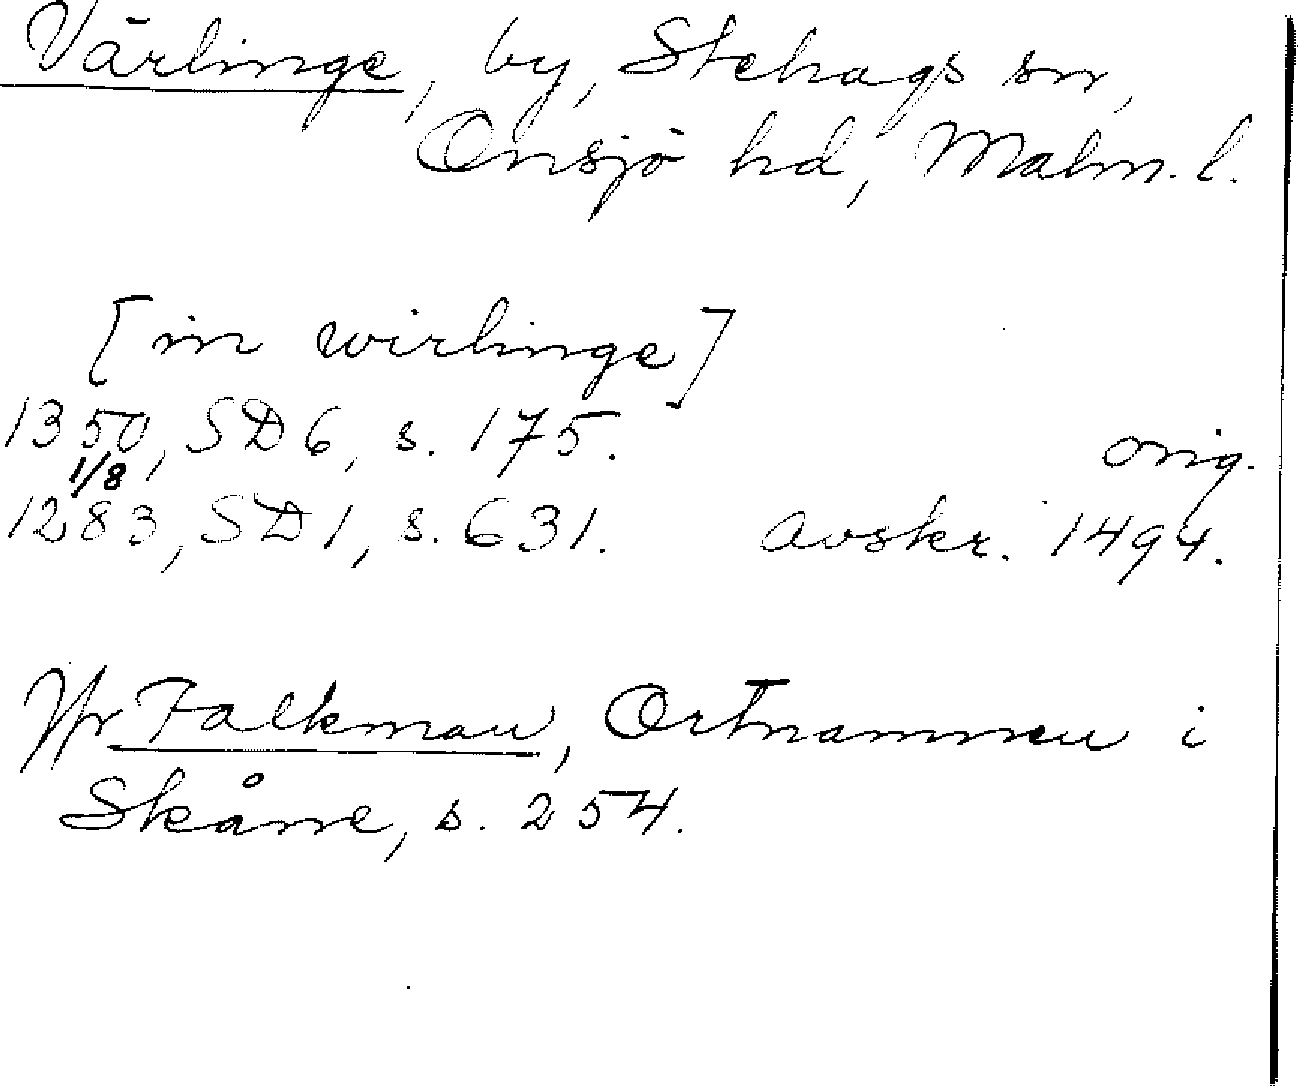 Värlinge, by, Stehags sn,
Onsjö hd, Malm. l.
[in wirlinge]
1350, SD 6, s. 175. orig.
1/8
1283, SD 1, s. 631. Avskr. 1494.
Jfr Falkman, Ortnamnen i
Skåne, s. 254.